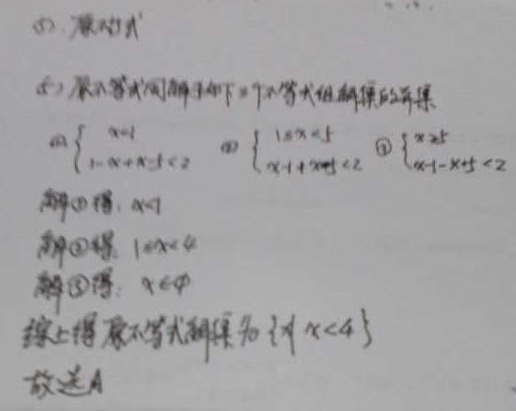 (5) 原不等式
(5) 原不等式同解于如下三个不等式组解集的并集
① { x<1 1-x+x-5<2 ② { 1≤x<5 x-1+x-5<2 ③ { x≥5 x-1-x+5<2
解①得: x<1
解②得: 1≤x<4
解③得: x∈φ
综上得原不等式解集为{x|x<4}
故选A